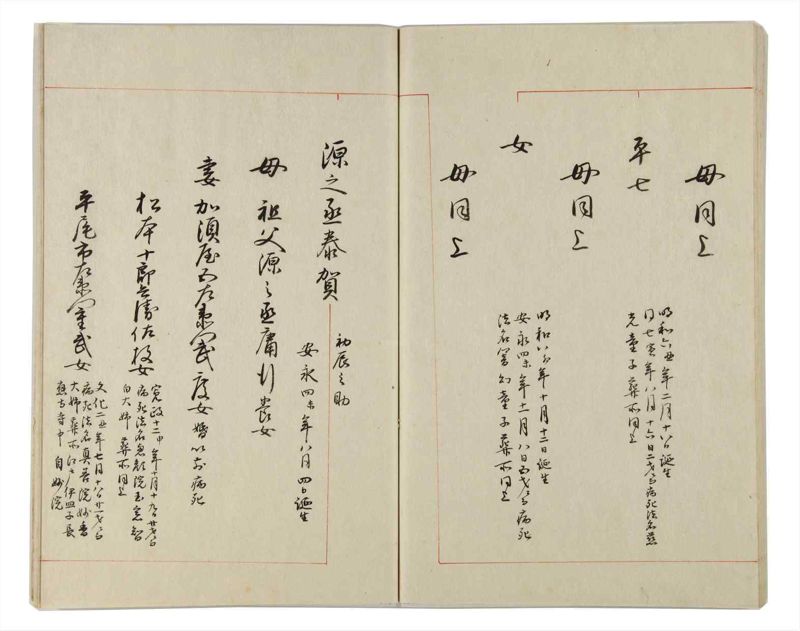 母同上
明和六丑年二月十八日誕生
同七寅年八月十六日二才ニ而病死法名慈
光童子葬所同上
平七
母同上
明和八卯年十月十二日誕生
安永四未年十一月八日五才ニ而病死
法名 幻童子葬所同上
女
母同上
源之丞泰賀
初辰之助
安永四未年八月四日誕生
母祖父源之丞庸行養女
妻加須屋五左衛門武度女婚以前病死
松本十郎兵衛佐 女
寛政十二申年十月十九日廿才ニ而
病死法名 院玉窓智
白大姉葬所同上
平尾市左衛門重武女
文化二丑年七月十八日廿一才ニ而
病死法名真吾院妙香
大姉葬所江戸伊皿子長
應寺中自妙院